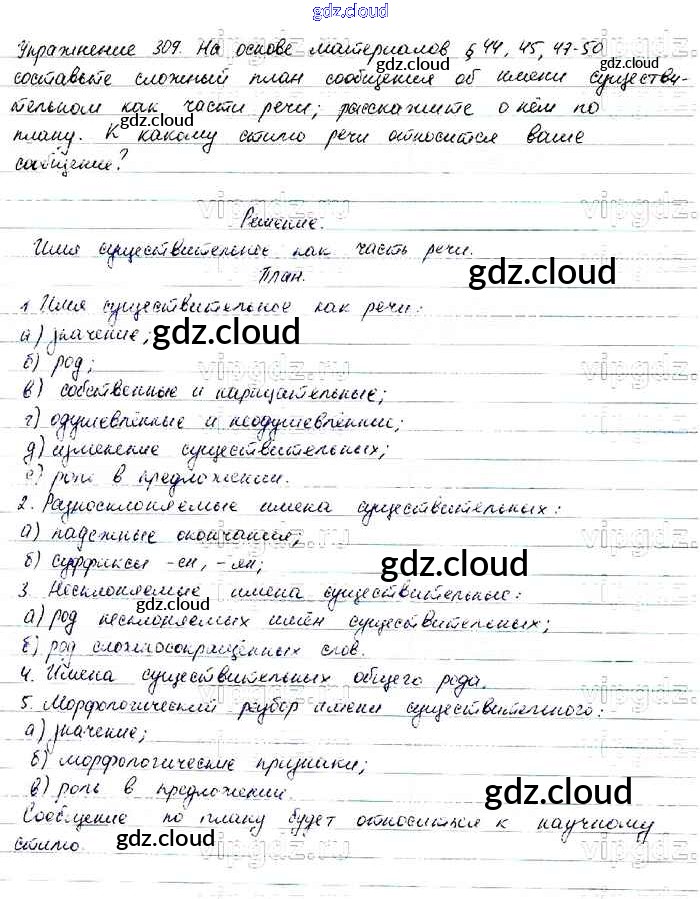 gdz.cloud
Упражнение 309. На основе материалов § 44, 45, 47-50
составьте сложный план сообщения об имени существи-
тельном как части речи; расскажите о нём по
плану. К какому стилю речи относится ваше
сообщение?
Решение.
Имя существительное как часть речи.
План.
1. Имя существительное как речи:
а) значение;
б) род;
в) собственные и нарицательные;
г) одушевлённые и неодушевлённые;
д) изменение существительных;
е) роль в предложении.
2. Разносклоняемые имена существительных:
а) падежные окончания;
б) суффиксы -ен, -ян;
3. Несклоняемые имена существительные:
а) род несклоняемых имён существительных;
б) род сложносокращённых слов.
4. Имена существительных общего рода.
5. Морфологический разбор имени существительного:
а) значение;
б) морфологические признаки;
в) роль в предложении.
Сообщение по плану будет относиться к научному
стилю.